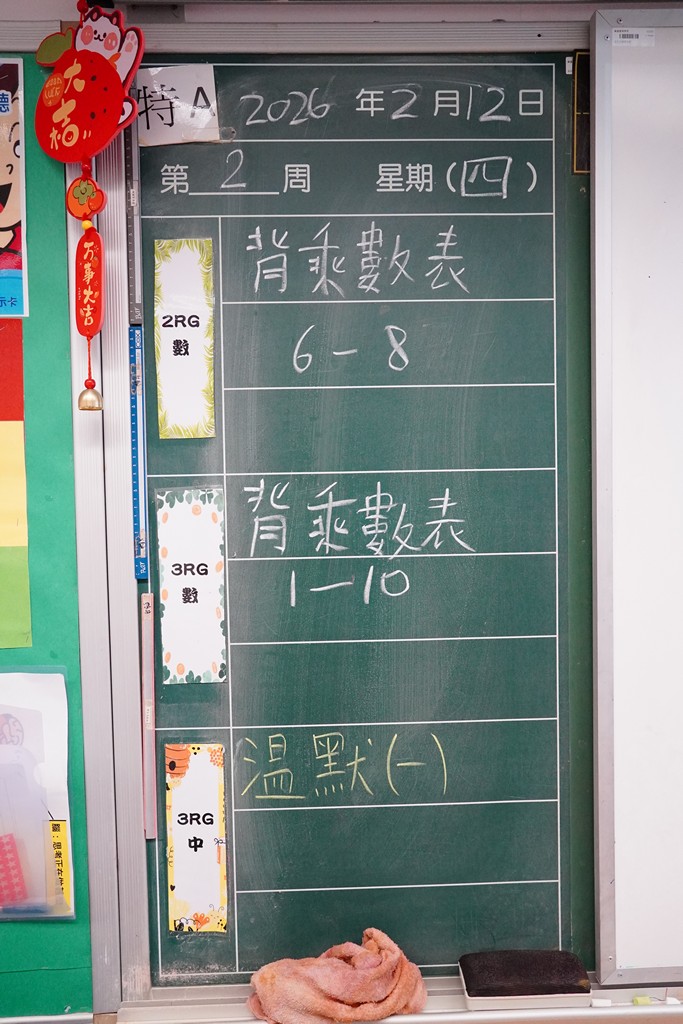 大吉
万事大吉
特A 2026年2月12日
第 2 周 星期(四)
2RG
數
背乘數表
6－8
3RG
數
背乘數表
1－10
3RG
中
溫默(一)
示卡
腦：思考正在